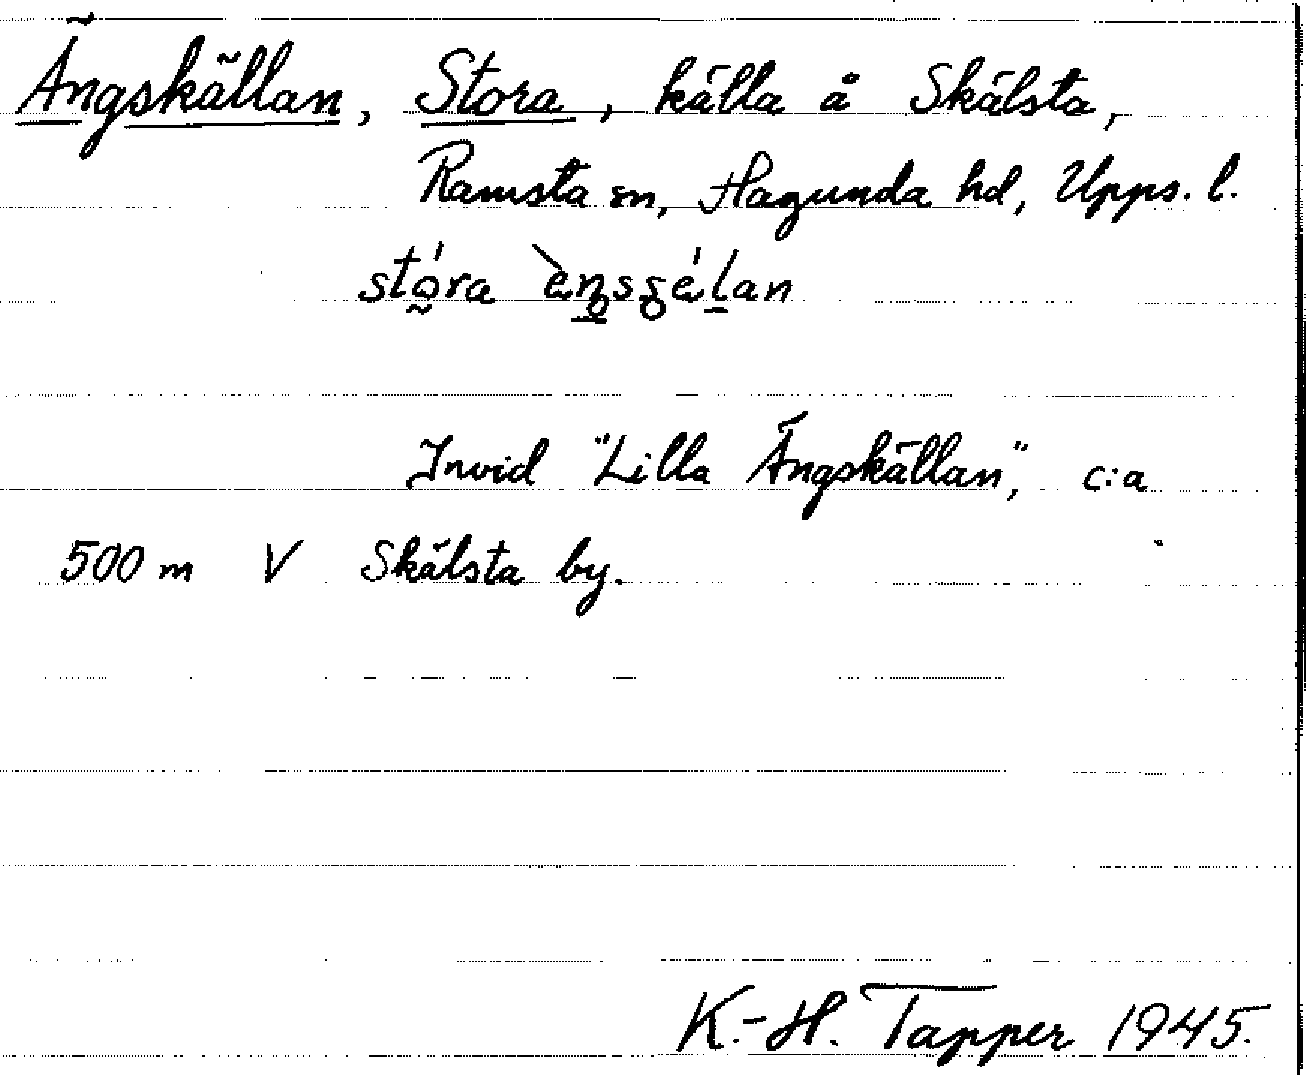 Ängskällan, Stora, källa å Skälsta,
Ramsta sn, Hagunda hd, Upps. l.
stóra
Invid "Lilla Ängskällan", c:a
500 m V Skälsta by.
K.-H. Tapper 1945.